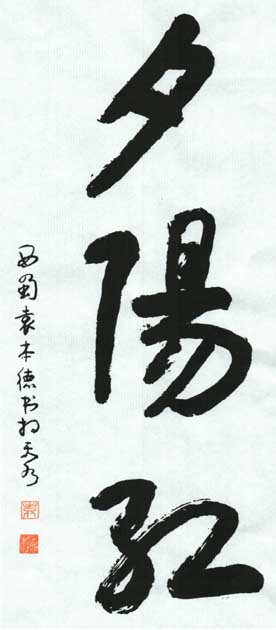 夕陽紅
西蜀袁本德书於天水